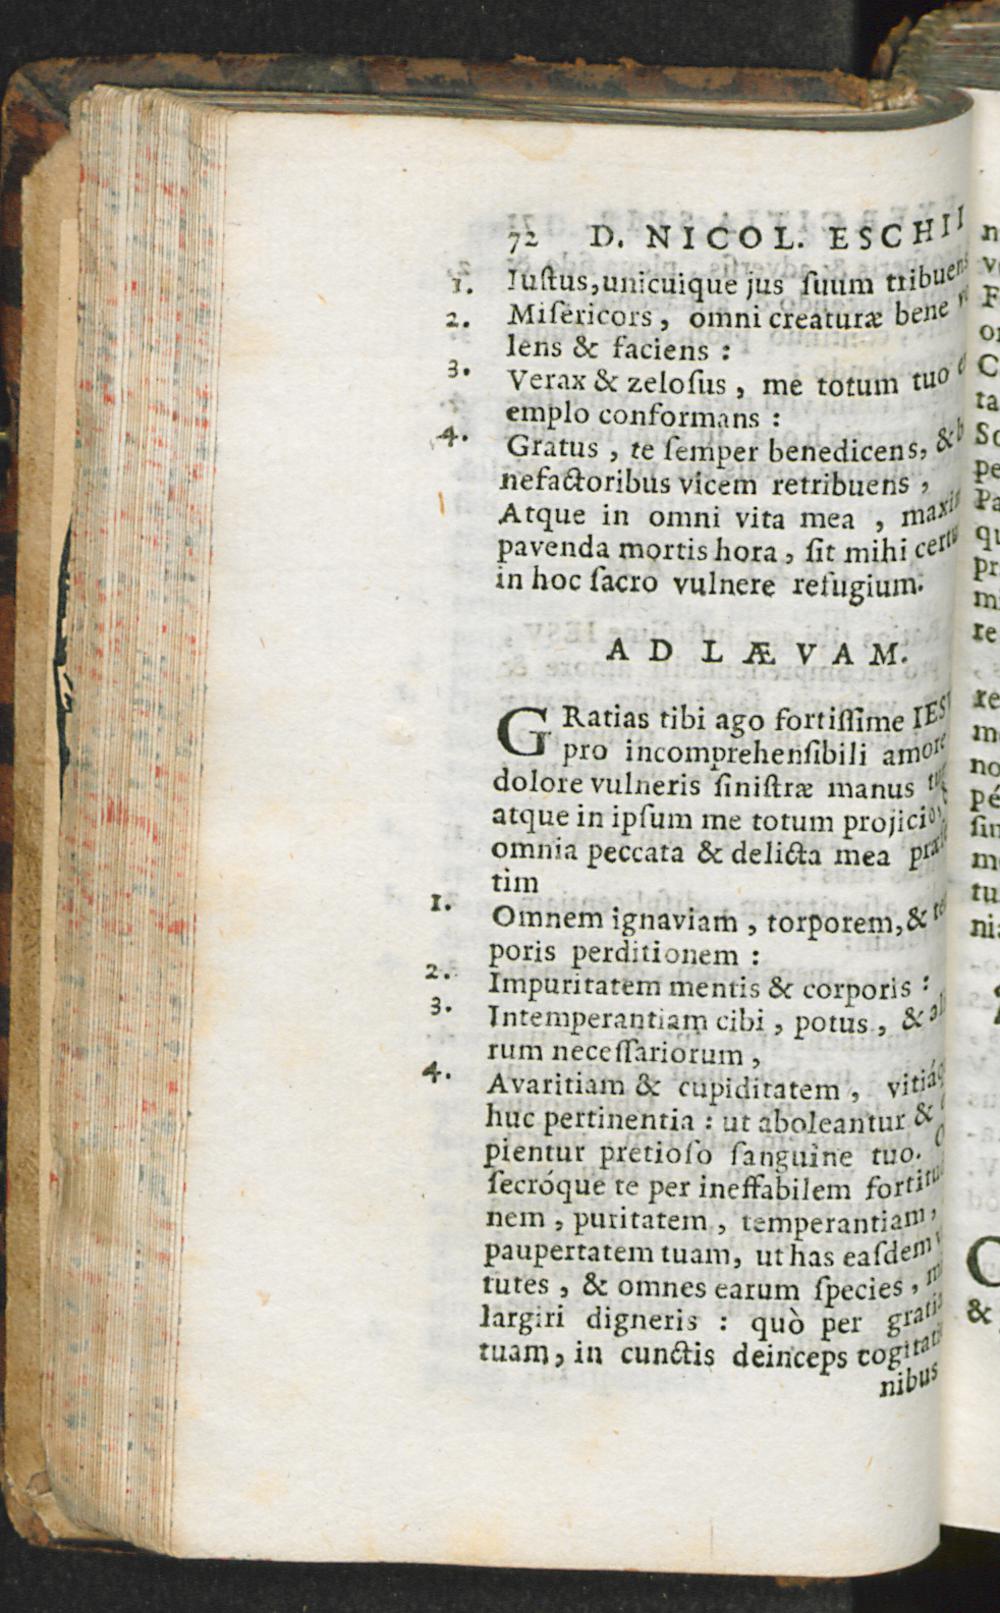 72 D. NICOL. ESCHII
1. Iuſtus, unicuique jus ſuum tribuens
2. Miſericors, omni creaturæ bene
lens & faciens :
3. Verax & zeloſus, me totum tuo
emplo conformans :
4. Gratus, te ſemper benedicens, & b
nefactoribus vicem retribuens,
Atque in omni vita mea, maxi
pavenda mortis hora, ſit mihi certu
in hoc ſacro vulnere refugium.
AD LÆVAM.
GRatias tibi ago fortiſſime IES
pro incomprehenſibili amore
dolore vulneris ſiniſtræ manus
atque in ipſum me totum projicio,
omnia peccata & delicta mea præ
tim
1. Omnem ignaviam, torporem, & te
poris perditionem :
2. Impuritatem mentis & corporis :
3. Intemperantiam cibi, potus, & al
rum neceſſariorum,
4. Avaritiam & cupiditatem, vitiáq
huc pertinentia : ut aboleantur &
pientur pretioſo ſanguine tuo.
ſecróque te per ineffabilem fortitu
nem, puritatem, temperantiam,
paupertatem tuam, ut has eaſdem
tutes, & omnes earum ſpecies, m
largiri digneris : quò per gratia
tuam, in cunctis deinceps cogitati
nibus